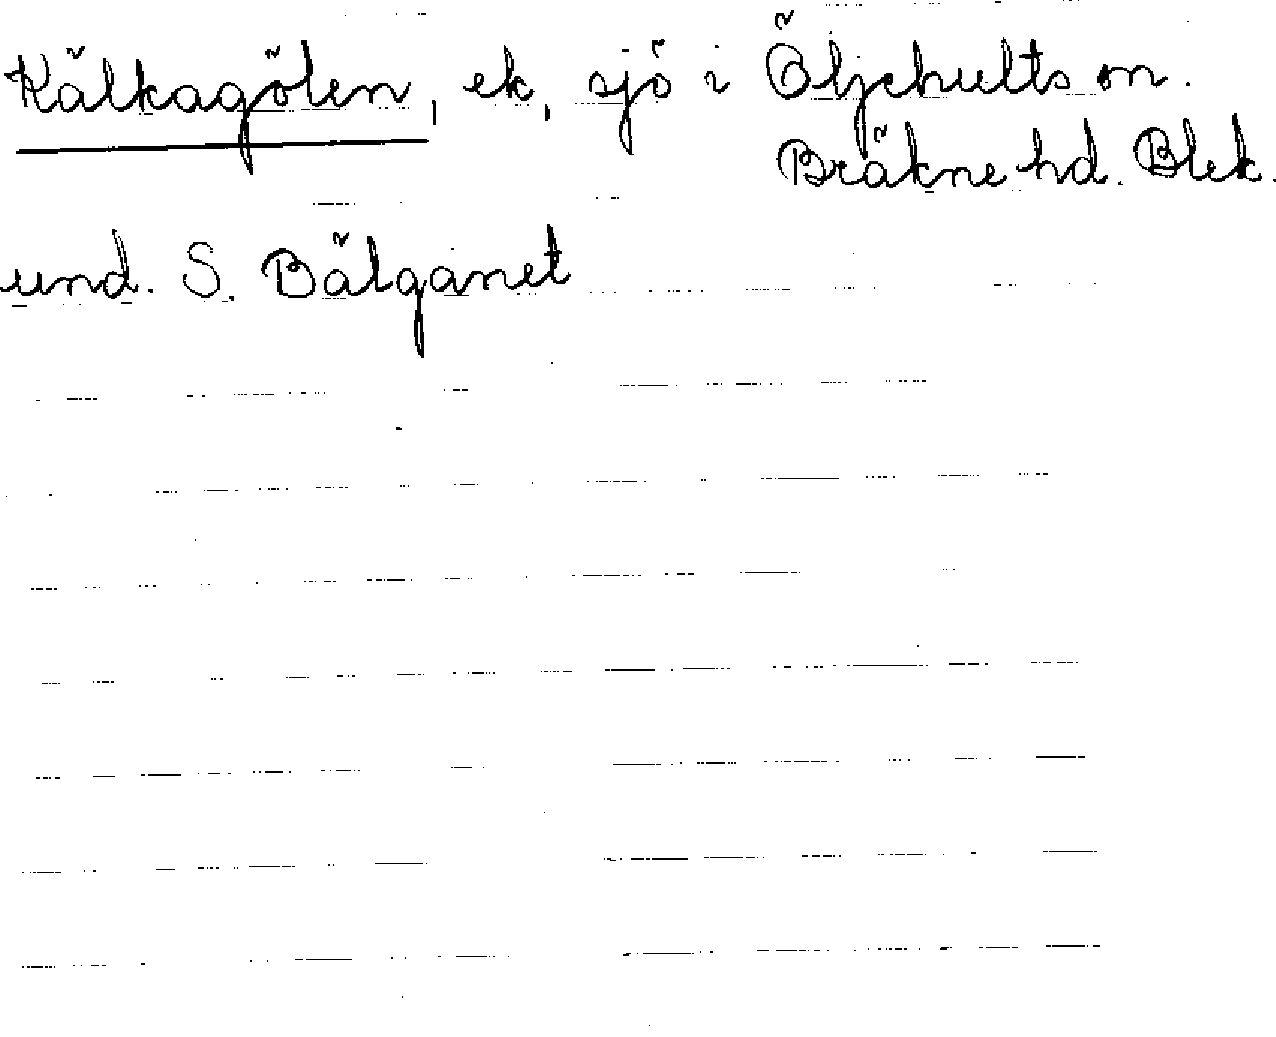 Kälkagölen, ek, sjö i Öljehults sn.
Bräkne hd. Blek.
und. S. Bälganet